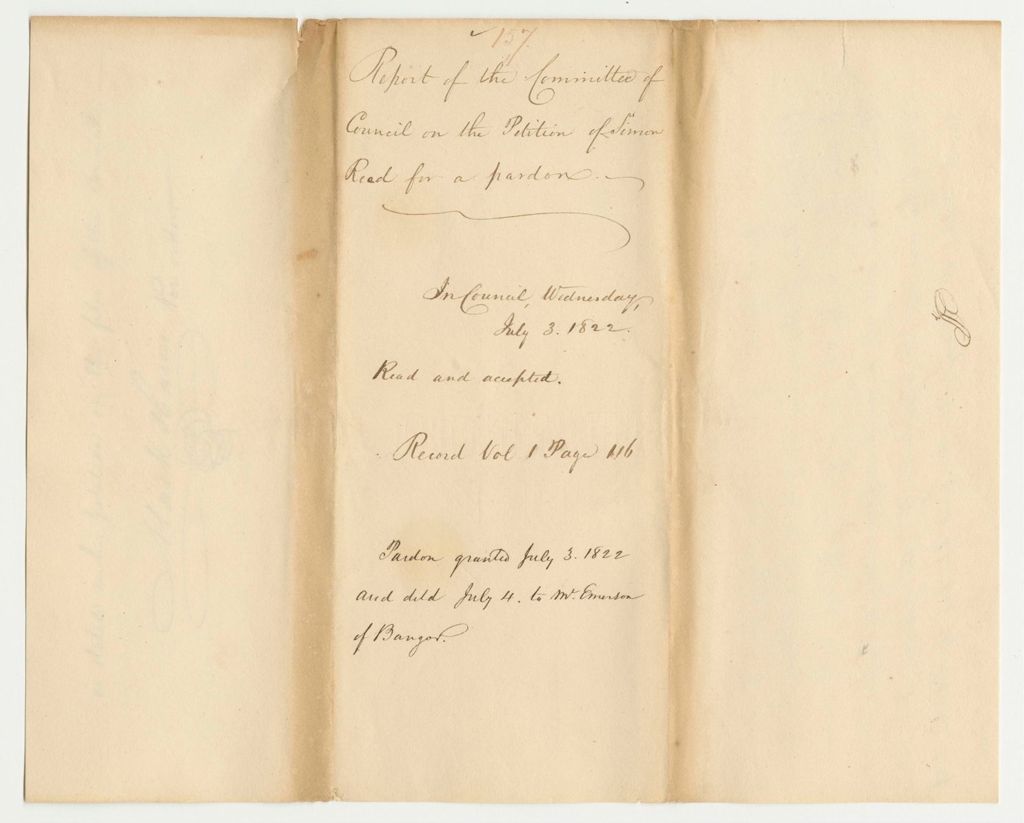 157.
Report of the Committee of
Council on the Petition of Simon
Read for a pardon.
In Council, Wednesday,
July 3. 1822.
Read and accepted.
Record Vol 1 Page 116
Pardon granted July 3. 1822
and deld July 4. to Mr. Emerson
of Bangor.